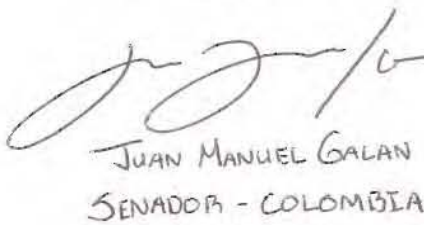 JUAN MANUEL GALAN
SENADOR - COLOMBIA